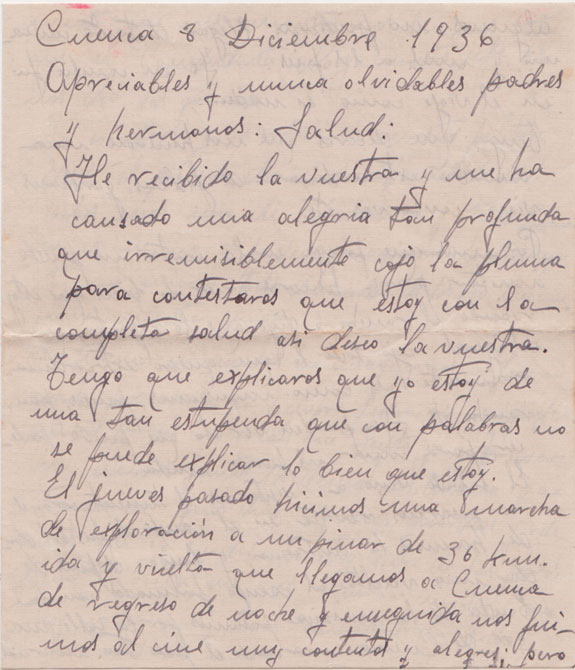 Cuenca 8 Diciembre 1936
Apreciables y nunca olvidables padres
y hermanos: Salud:
He recibido la vuestra y me ha
causado una alegria tan profunda
que irremisiblemente cojo la pluma
para contestaros que estoy con la
completa salud asi deseo la vuestra.
Tengo que explicaros que yo estoy de
una tan estupenda que con palabras no
se puede explicar lo bien que estoy.
El jueves pasado hicimos una marcha
de exploración a un pinar de 36 km.
ida y vuelta que llegamos a Cuenca
de regreso de noche y enseguida nos fui-
mos al cine muy contentos y alegres pero